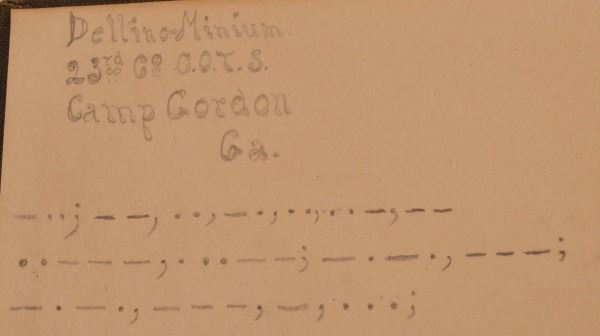 Dellino Minium.
23rd Co C.O.T.S.
Camp Gordon
Ga.
— · · ; — — , · · , — · , · · , · · — , — —
· · — — — , · · · — — ; — · — · , — — — ;
— · — · , — — — , — , · · · ;